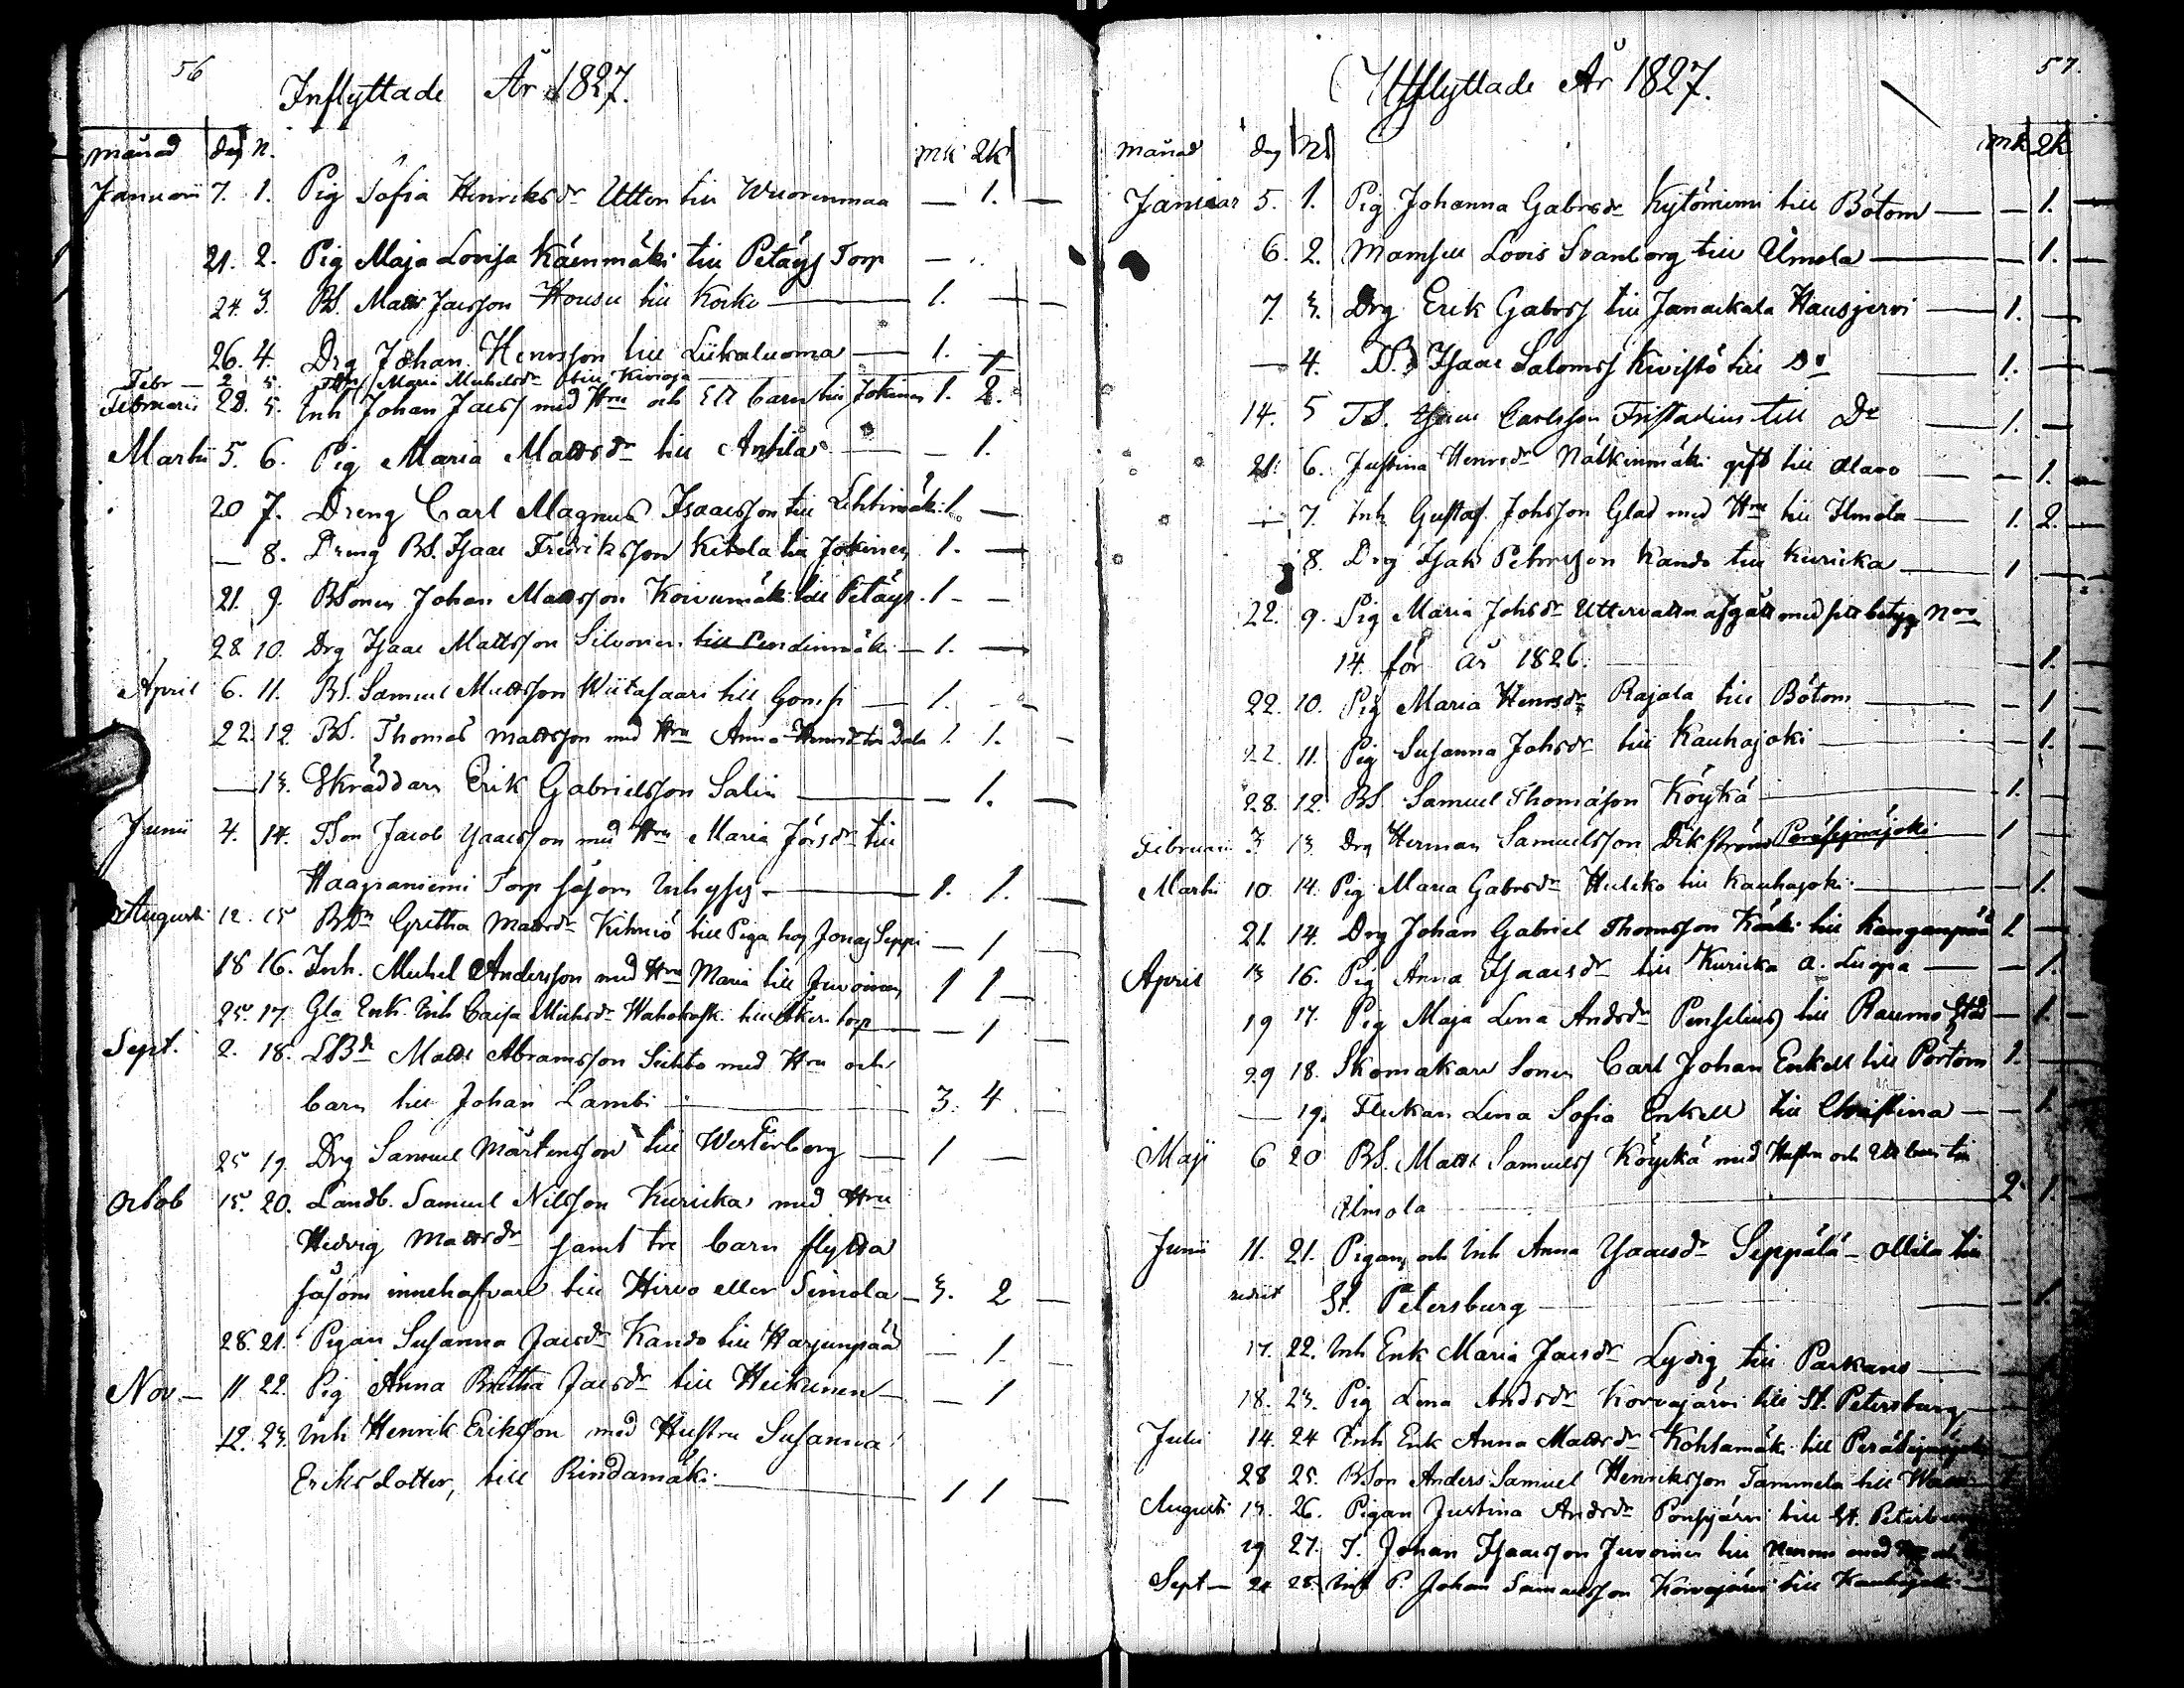 56
Inflyttade År 1827.
månad dag N. mk 2k
Januarii 7. 1. Pig Sofia Henriksdr Utter till Wuorenmaa — 1. —
21. 2. Pig Maja Lovisa Käenmäki till Petäys Torp —
24. 3. BS. Matts Jacsson Housu till Korko — 1. —
26. 4. Drg Johan Henrsson till Liikaluoma — 1. —
Febr — 2 5. Maria Michelsdr till Kivioja
Februarii 28. 5. Inh Johan Jacss med Hru och Ett barn till Jokinen 1. 2.
Martii 5. 6. Pig Maria Mattsdr till Anttila — 1.
20 7. Dreng Carl Magnus Isaacsson till Lehtimäki 1. —
— 8. Dreng BS. Isaac Fredriksson Ketola till Jokinen 1. —
21. 9. BSonen Johan Mattsson Koivumäki till Petäys 1 — —
28 10. Drg Isaac Mattsson Silvonen till Lendinmäki — 1. —
April 6. 11. BS. Samuel Mattsson Wiitasaari till Gomsi — 1. —
22. 12. BS. Thomas Mattsson med Hru Anna Henrsdr till Dala 1. 1. —
— 13. Skräddare Erik Gabrielsson Salin — 1. —
Junii 4. 14. TSon Jacob Isaacsson med Hru Maria Jörsdr till
Haapaniemi Torp såsom Inhyses — 1. 1. —
Augusti 12. 15 BDr Gretha Mattsdr Kihniö till Piga hos Jonas Seppi — 1 —
18 16. Inh. Michel Andersson med Hru Maria till Juvoinen 1 1 —
25. 17 Gla Enk. Inh Caisa Michsdr Wahokosk. till Åker torp — 1 —
Sept. 2. 18. LBd Matts Abramsson Luhto med Hru och
barn till Johan Lambi — 3. 4. —
25 19. Drg Samuel Mårtensson till Westerborg — 1 —
Octob 15. 20. Landb. Samuel Nilsson Kuricka med Hru
Hedvig Mattsdr samt tre barn flytta
såsom innehafvare till Hirvo eller Simola — 3. 2 —
28. 21. Pigan Susanna Jacsdr Kando till Harjunpää — 1. —
Nov — 11 22. Pig Anna Britha Jacsdr till Heikunen — — 1
12. 23. Inh Henrik Eriksson med Hustru Susanna
Eriksdotter, till Rindamäki — 1 1 —
57.
Utflyttade År 1827.
månad dag N mk 2k
Januar 5. 1. Pig Johanna Gabrsdr Kytöniemi till Bötom — — 1. —
6. 2. Mamsell Lovis Svanborg till Ilmola — — 1. —
7. 3. Drg Erik Gabrss till Janackala Hausjervi — 1. —
— 4. D.o Isaac Salomss Kivistö till Do — 1. —
14. 5 TS. Isaac Carlsson Fristadius till Do — 1. —
21. 6. Justina Henrsdr Nälkinmäki gift till Alavo — — 1. —
— 7. Inh Gustaf Johsson Glad med Hru till Ilmola — 1. 2. —
8. Drg Isak Petersson Kando till Kuricka — 1 —
22. 9. Pig Maria Johsdr Uttervattn afgått med sitt betyg Noo
14. för år 1826. — — 1. —
22. 10. Pig Maria Henrsdr Rajala till Bötom — — 1 —
22. 11. Pig Susanna Johsdr till Kauhajoki — — 1. —
28. 12. BS. Samuel Thomasson Köykä — 1. —
Februarii 3. 13. Drg Herman Samuelsson Dikström Peräsejnäjoki 1 —
Martii 10. 14. Pig Maria Gabrsdr Huliko till Kauhajoki — — 1.
21. 14. Drg Johan Gabriel Thomsson Käski till Kangaspää 1 —
April 13 16. Pig Anna Isaacsdr till Kuricka a. Luopa — — 1.
19 17. Pig Maja Lena Andsdr Penselius till Raumo Stad — 1. —
29 18. Skomakare Sonen Carl Johan Enkell till Pörtom 1. —
— 19. Flickan Lena Sofia Enkell till Christina — — 1.
Maji 6 20 BS. Matts Samuelss Köyckä med Hustru och Ett barn till
Ilmola — 2. 1.
Junii 11. 21. Pigan och Inh Anna Isaacsdr Seppälä — Ollila till
rediit St. Petersburg — — 1.
17. 22. Inh Enk Maria Jacsdr Lydig till Parkano —
18. 23. Pig Lena Andsdr Korvajärvi till St. Petersburg —
Julii 14. 24 Inh Enk Anna Mattsdr Kohlamäk. till Peräsejnäjoki
28 25. BSon Anders Samuel Henriksson Tammela till Wasa
Augusti 13. 26. Pigan Justina Andsdr Ponsjärvi till St. Petersburg
19 27. T. Johan Isaacsson Juvoinen till med
Sept — 24 28. Inh P. Johan Samuelsson Korvajärvi till Kauhajoki —